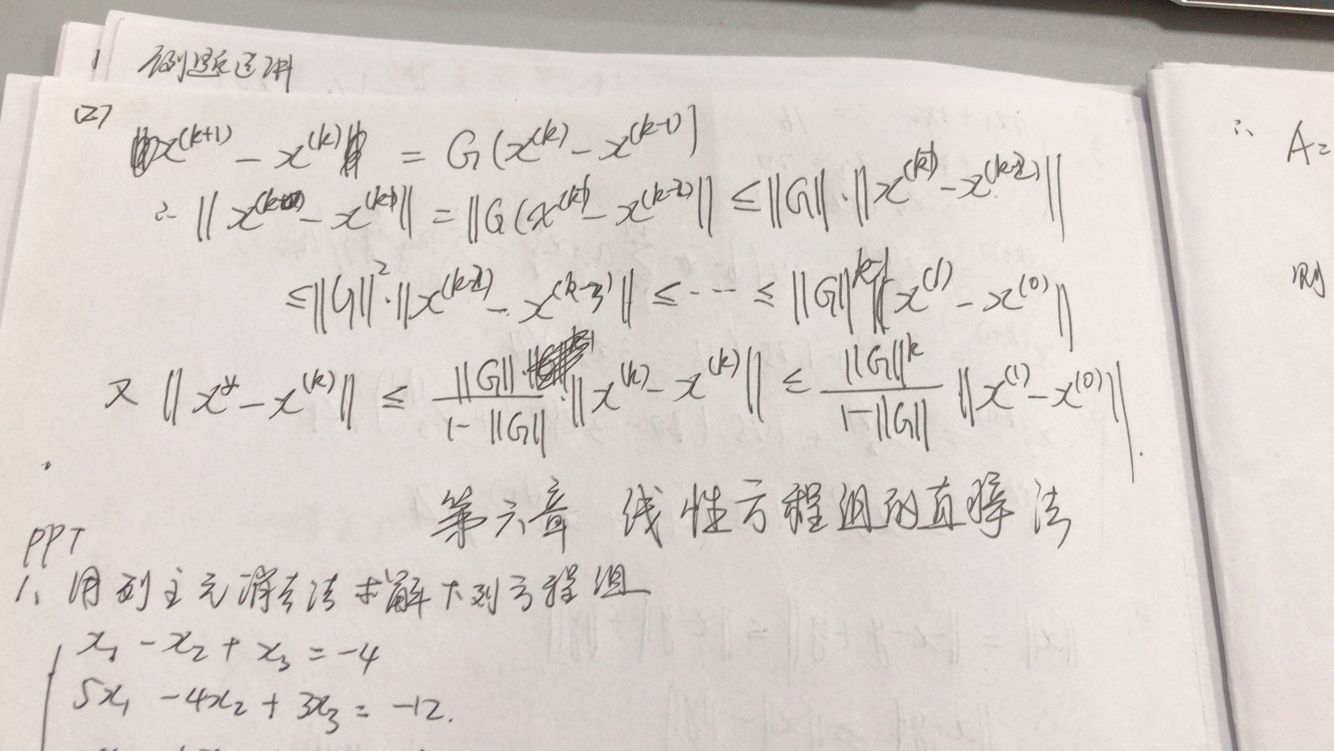 (2) x^(k+1) - x^(k) = G(x^(k) - x^(k-1))
∴ ||x^(k) - x^(k-1)|| = ||G(x^(k-1) - x^(k-2)|| ≤ ||G||·||x^(k-1) - x^(k-2)||
≤ ||G||²·||x^(k-2) - x^(k-3)|| ≤ ··· ≤ ||G||^k-1 ||x^(1) - x^(0)||
又 ||x* - x^(k)|| ≤ ||G||/(1-||G||)·||x^(k) - x^(k)|| ≤ ||G||^k/(1-||G||) ||x^(1) - x^(0)||.
第六章 线性方程组的直接法
PPT
1、用列主元消去法求解下列方程组
x₁ - x₂ + x₃ = -4
5x₁ - 4x₂ + 3x₃ = -12.
∴ A=
则